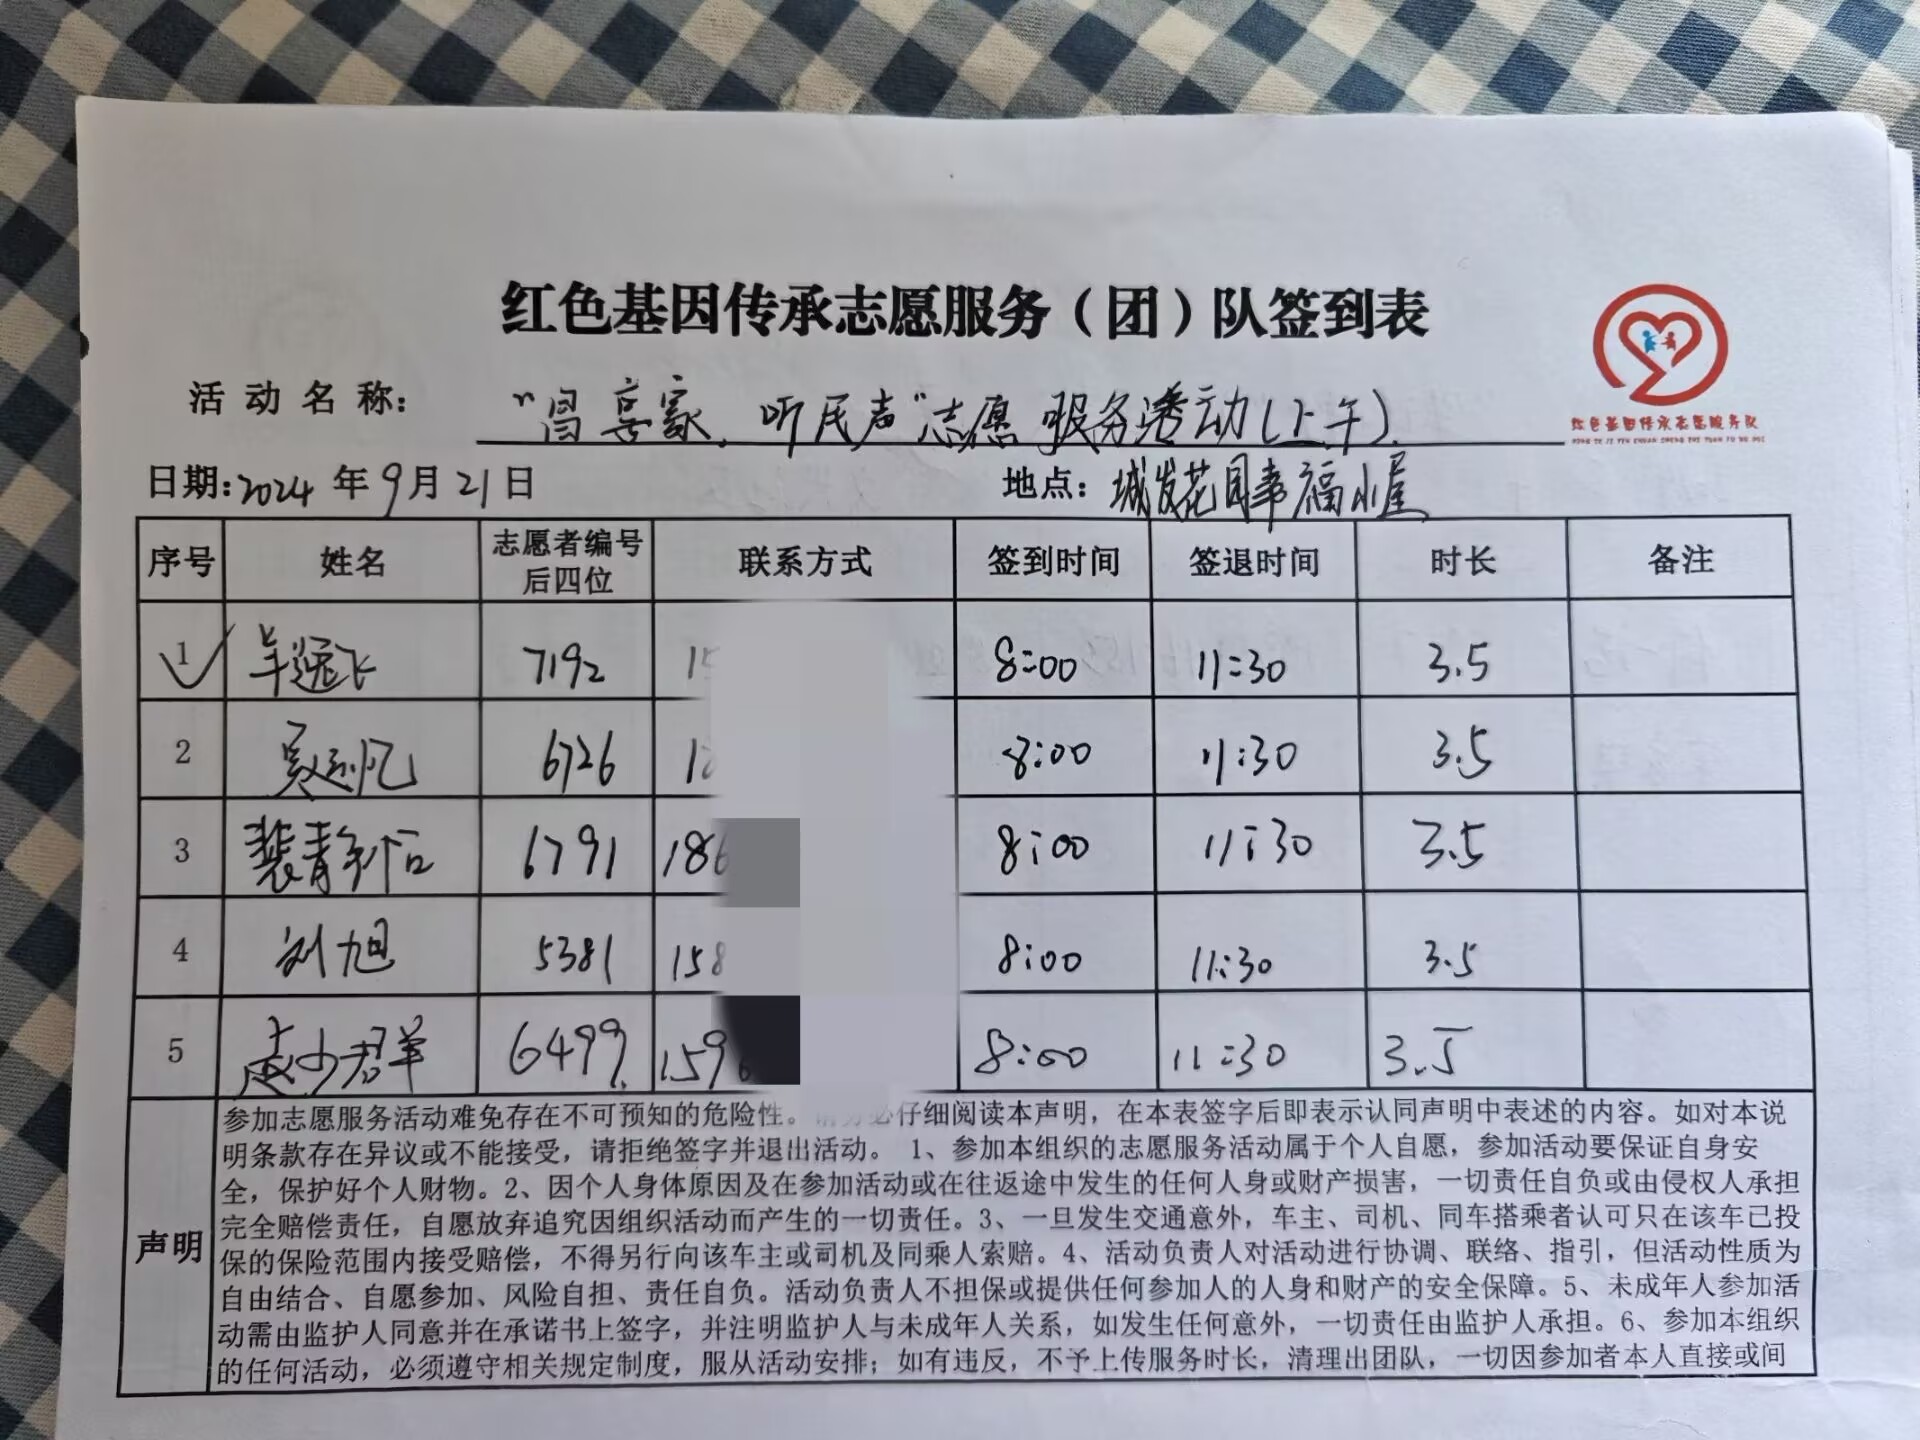 红色基因传承志愿服务（团）队签到表
红色基因传承志愿服务队
活动名称： 听民声"志愿服务活动(上午)
日期:2024年9月21日 地点：城发花园幸福小屋
序号 姓名 志愿者编号后四位 联系方式 签到时间 签退时间 时长 备注
1 羊逸飞 7192 15 8:00 11:30 3.5
2 吴 忆 6726 1 8:00 11:30 3.5
3 裴青 6791 186 8:00 11:30 3.5
4 刘旭 5381 158 8:00 11:30 3.5
5 赵少群 6499 159 8:00 11:30 3.5
声明
参加志愿服务活动难免存在不可预知的危险性。请务必仔细阅读本声明，在本表签字后即表示认同声明中表述的内容。如对本说
明条款存在异议或不能接受，请拒绝签字并退出活动。 1、参加本组织的志愿服务活动属于个人自愿，参加活动要保证自身安
全，保护好个人财物。2、因个人身体原因及在参加活动或在往返途中发生的任何人身或财产损害，一切责任自负或由侵权人承担
完全赔偿责任，自愿放弃追究因组织活动而产生的一切责任。3、一旦发生交通意外，车主、司机、同车搭乘者认可只在该车已投
保的保险范围内接受赔偿，不得另行向该车主或司机及同乘人索赔。4、活动负责人对活动进行协调、联络、指引，但活动性质为
自由结合、自愿参加、风险自担、责任自负。活动负责人不担保或提供任何参加人的人身和财产的安全保障。5、未成年人参加活
动需由监护人同意并在承诺书上签字，并注明监护人与未成年人关系，如发生任何意外，一切责任由监护人承担。6、参加本组织
的任何活动，必须遵守相关规定制度，服从活动安排；如有违反，不予上传服务时长，清理出团队，一切因参加者本人直接或间